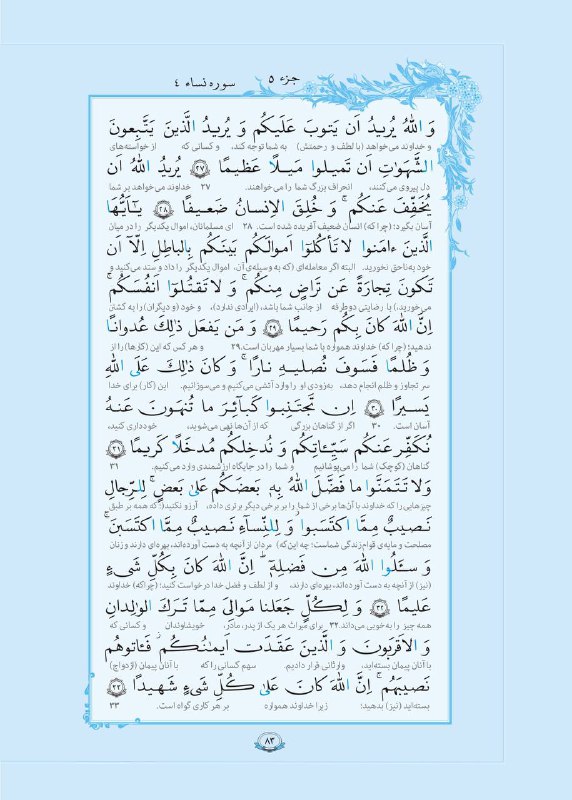 جزء ۵ سوره نساء ۴
وَ اللّٰهُ يُريدُ اَن يَتوبَ عَلَيكُم وَ يُريدُ الَّذينَ يَتَّبِعونَ
و خداوند می‌خواهد (با لطف و رحمتش) به شما توجه کند، و کسانی که از خواسته‌های
الشَّهَواتِ اَن تَميلوا مَيلًا عَظيمًا ﴿۲۷﴾ يُريدُ اللّٰهُ اَن
دل پیروی می‌کنند، انحراف بزرگ شما را می‌خواهند. ۲۷ خداوند می‌خواهد بر شما
يُخَفِّفَ عَنكُم ۚ وَ خُلِقَ الاِنسانُ ضَعيفًا ﴿۲۸﴾ يـٰٓاَيُّهَا
آسان بگیرد؛ (چرا که) انسان ضعیف آفریده شده است. ۲۸ ای مسلمانان، اموال یکدیگر را در میان
الَّذينَ ءامَنوا لا تَأكُلوٓا اَموالَكُم بَينَكُم بِالباطِلِ اِلّآ اَن
خود به‌ناحق نخورید. البته اگر معامله‌ای (که به وسیله‌ی آن، اموال یکدیگر را داد و ستد می‌کنید و
تَكونَ تِجارَةً عَن تَراضٍ مِنكُم ۚ وَ لا تَقتُلوٓا اَنفُسَكُم ۚ
می‌خورید،) با رضایتی دوطرفه از جانب شما باشد، (ایرادی ندارد)، و خود (و دیگران) را به کشتن
اِنَّ اللّٰهَ كانَ بِكُم رَحيمًا ﴿۲۹﴾ وَ مَن يَفعَل ذٰلِكَ عُدوانًا
ندهید؛ (چرا که) خداوند همواره با شما بسیار مهربان است. ۲۹ و هر کس که این (کارها) را از
وَ ظُلمًا فَسَوفَ نُصليهِ نارًا ۚ وَ كانَ ذٰلِكَ عَلَى اللّٰهِ
سر تجاوز و ظلم انجام دهد، به‌زودی او را وارد آتشی می‌کنیم و می‌سوزانیم. این (کار) برای خدا
يَسيرًا ﴿۳۰﴾ اِن تَجتَنِبوا كَبآئِرَ ما تُنهَونَ عَنهُ
آسان است. ۳۰ اگر از گناهان بزرگی که از آن‌ها نهی می‌شوید، خودداری کنید،
نُكَفِّر عَنكُم سَيِّـاتِكُم وَ نُدخِلكُم مُدخَلًا كَريمًا ﴿۳۱﴾
گناهان (کوچک) شما را می‌پوشانیم و شما را در جایگاه ارزشمندی وارد می‌کنیم. ۳۱
وَ لا تَتَمَنَّوا ما فَضَّلَ اللّٰهُ بِهٖ بَعضَكُم عَلىٰ بَعضٍ ۚ لِلرِّجالِ
چیزهایی را که خداوند با آن‌ها برخی از شما را بر برخی دیگر برتری داده، آرزو نکنید؛ (که همه بر طبق
نَصيبٌ مِمَّا اكتَسَبوا ۖ وَ لِلنِّسآءِ نَصيبٌ مِمَّا اكتَسَبنَ ۚ
مصلحت و مایه‌ی قوام زندگی شماست؛ چه این‌که) مردان از آنچه به دست آورده‌اند، بهره‌ای دارند و زنان
وَ سـَٔلُوا اللّٰهَ مِن فَضلِهٖٓ ۗ اِنَّ اللّٰهَ كانَ بِكُلِّ شَىءٍ
(نیز) از آنچه به دست آورده‌اند، بهره‌ای دارند، و از لطف و فضل خدا درخواست کنید؛ (چرا که) خداوند
عَليمًا ﴿۳۲﴾ وَ لِكُلٍّ جَعَلنا مَوالِىَ مِمّا تَرَكَ الوالِدانِ
همه چیز را به‌خوبی می‌داند. ۳۲ برای میراث هر یک از پدر، مادر، خویشاوندان و کسانی که
وَ الاَقرَبونَ ۚ وَ الَّذينَ عَقَدَت اَيمٰنُكُم فَـٔاتوهُم
با آنان پیمان بسته‌اید، وارثانی قرار دادیم. سهم کسانی را که با آنان پیمان (ازدواج)
نَصيبَهُم ۚ اِنَّ اللّٰهَ كانَ عَلىٰ كُلِّ شَىءٍ شَهيدًا ﴿۳۳﴾
بسته‌اید (نیز) بدهید؛ زیرا خداوند همواره بر هر کاری گواه است. ۳۳
۸۳